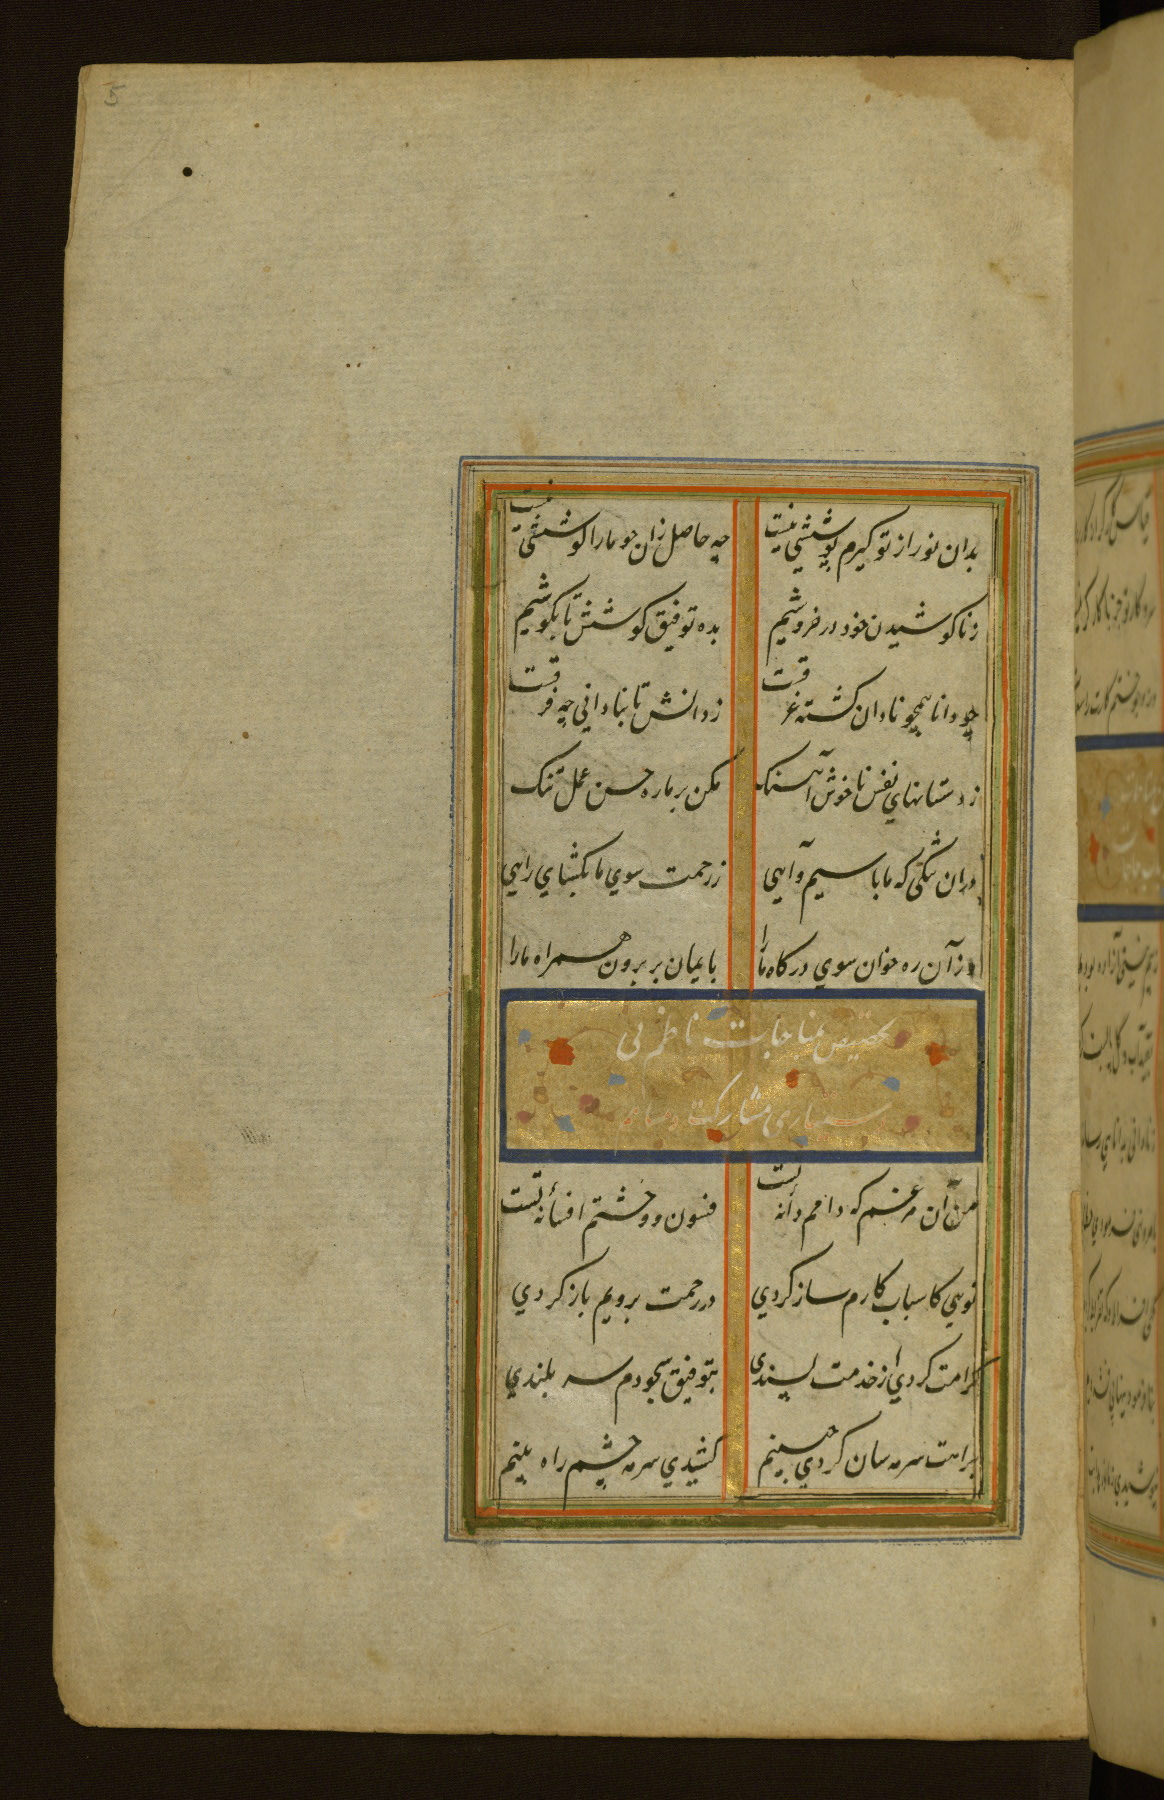 5
بدان نور از تو گیرم پوششی نیست
چه حاصل زان چو ما را کوششی نیست
ز ناکوشیدن خود در خروشیم
بده توفیق کوشش تا بکوشیم
چو دانا همچو نادان گشته غرقست
ز دانش تا بنادانی چه فرقست
ز دستانهای نفس ناخوش آهنک
مکن بر ما ره حسن عمل تنک
دران تنکی که ما باشیم و آهی
ز رحمت سوی ما بکشای راهی
وز آن ره خوان سوی درکاه ما را
بایمان بر برون همراه ما را
تخصیص بمناجات ناظم بی
مشارکت و مساهم
من آن مرغم که دامم دانهٔ تست
فسون وحشتم افسانهٔ تست
تویی کاسباب کارم ساز کردی
در رحمت برویم باز کردی
کرامت کردی‌ از خدمت پسندی
بتوفیق سجودم سر بلندی
براهت سرمه سان کردی جبینم
کشیدی سرمه چشم راه بینم